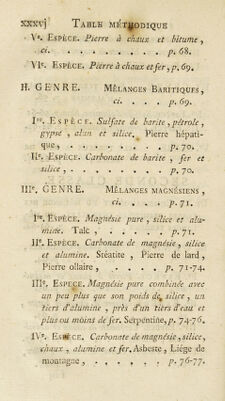 xxxvj TABLE MÉTHODIQUE
Ve. ESPÈCE. Pierre à chaux et bitume,
ci. . . . . . . p. 68.
VIe. ESPÈCE. Pierre à chaux et fer, p. 69.
II. GENRE. MÉLANGES BARITIQUES,
ci. . . . p. 69.
Ire. ESPÈCE. Sulfate de barite, pétrole,
gypse, alun et silice. Pierre hépati-
que, . . . . . . p. 70.
IIe. ESPÈCE. Carbonate de barite, fer et
silice, . . . . . . p. 70.
IIIe. GENRE. MÉLANGES MAGNÉSIENS,
ci. . . . p. 71.
Ire. ESPÈCE. Magnésie pure, silice et alu-
mine. Talc, . . . . . p. 71.
IIe. ESPÈCE. Carbonate de magnésie, silice
et alumine. Stéatite, Pierre de lard,
Pierre ollaire, . . . . p. 71-74.
IIIe. ESPÈCE. Magnésie pure combinée avec
un peu plus que son poids de silice, un
tiers d'alumine, près d'un tiers d'eau et
plus ou moins de fer. Serpentine, p. 74-76.
IVe. ESPÈCE. Carbonate de magnésie, silice,
chaux, alumine et fer. Asbeste, Liège de
montagne, . . . . . p. 76-77.